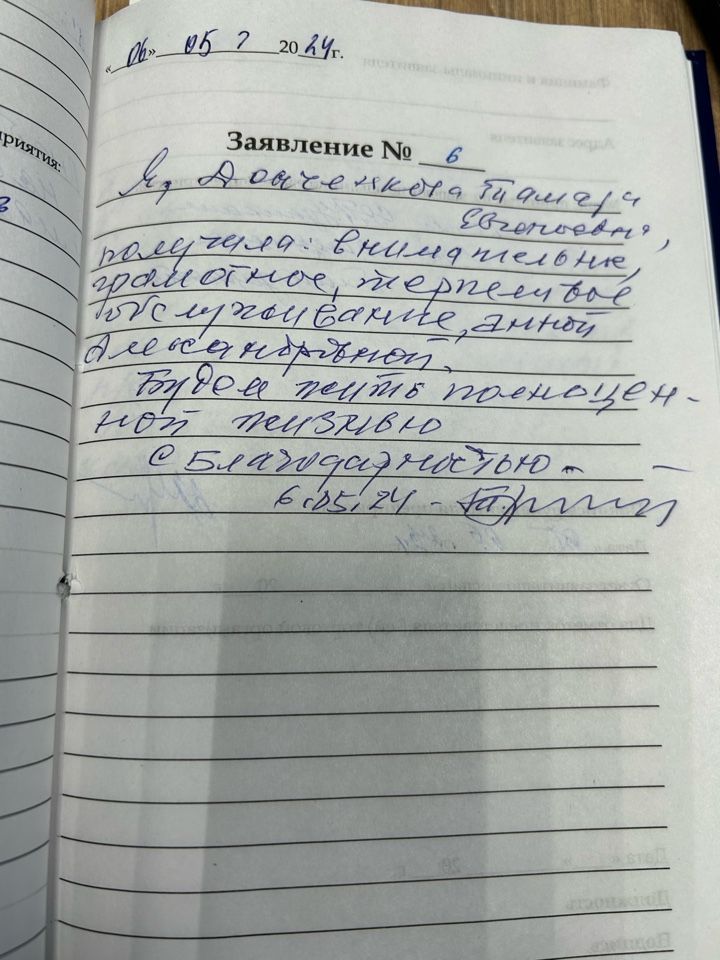 приятия:
«06» 05 2024г.
Заявление № 6
Я, Тамара
Евгеньевна,
получила: внимательное,
грамотное, терпеливое
обслуживание, Анной
Александровной.
Будем жить полноцен-
ной жизнью
С Благодарностью -
6.05.24 -